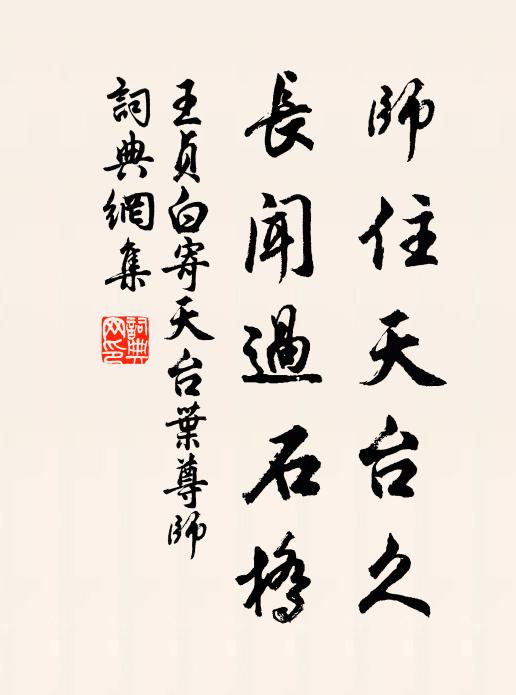 師住天台久
長聞過石橋
王貞白寄天台葉尊師
詞典網集
詞典网印